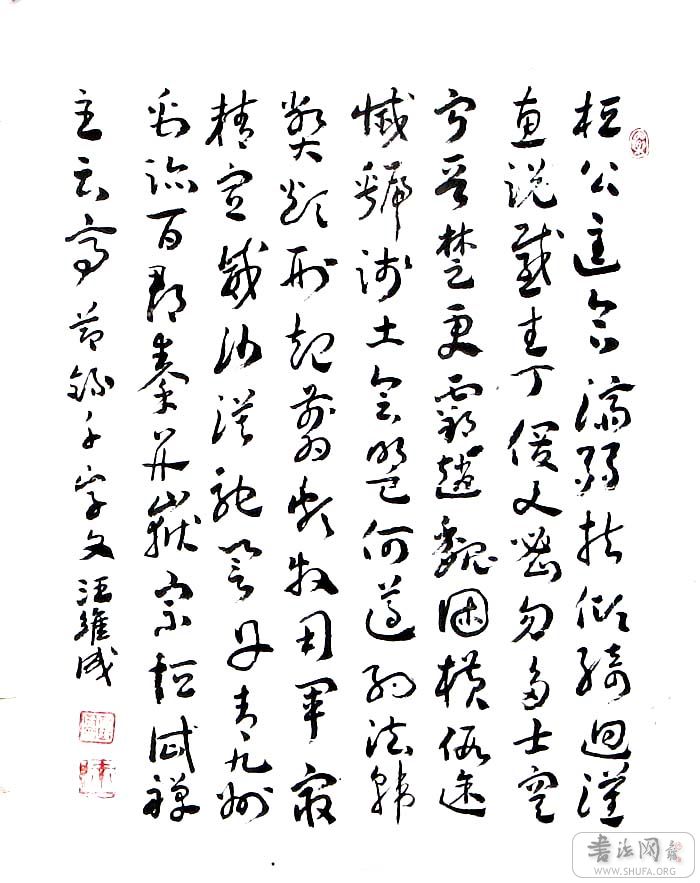 桓公匡合濟弱扶傾綺迴漢
惠說感武丁俊乂密勿多士寔
寧晉楚更霸趙魏困橫假途
滅虢踐土會盟何遵約法韓
弊煩刑起翦頗牧用軍最
精宣威沙漠馳譽丹青九州
禹跡百郡秦并嶽宗恒岱禪
主云亭 節錄千字文 汪維成
書法网
WWW.SHUFA.ORG